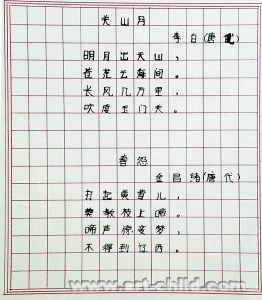 关山月
李白(唐
明月出天山，
苍茫云海间。
长风几万里，
吹度玉门关。
春怨
金昌绪(唐代)
打起黄莺儿，
莫教枝上啼。
啼声惊妾梦，
不得到辽西。